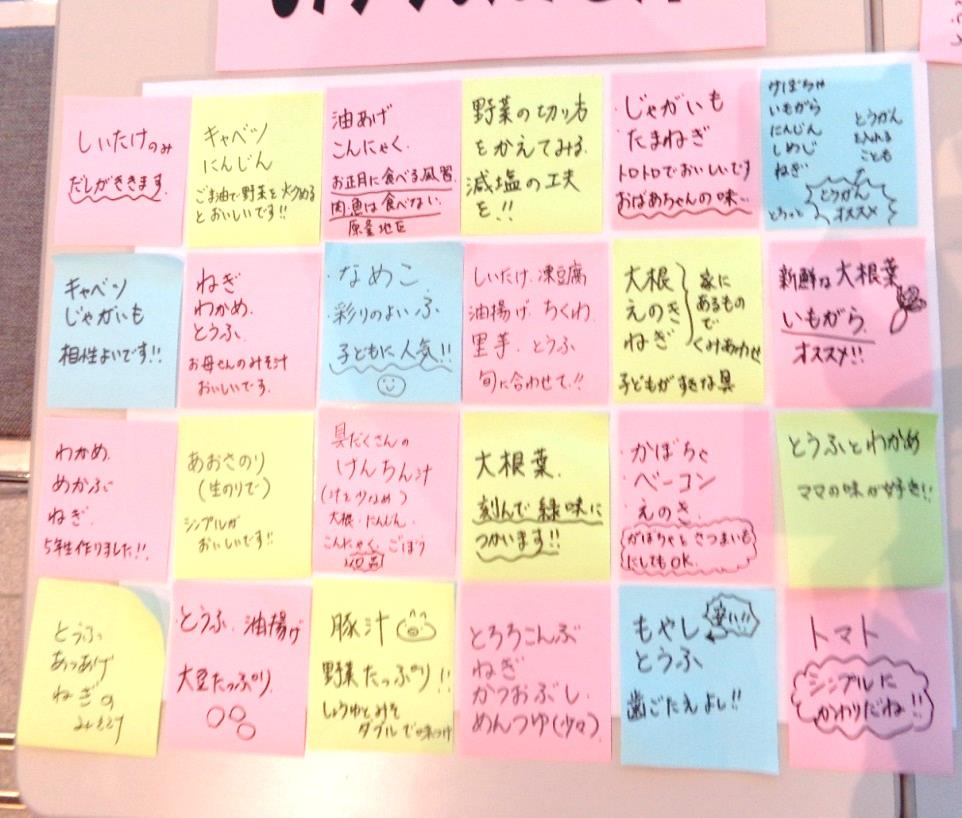 しいたけのみ
だしがききます。
キャベツ
にんじん
ごま油で野菜を炒める
とおいしいです!!
油あげ
こんにゃく.
お正月に食べる風習.
肉魚は食べない.
原産地区
野菜の切り方
をかえてみる.
減塩の工夫
を!!
・じゃがいも
たまねぎ
トロトロでおいしいです
おばあちゃんの味…
けぼちゃ
いもがら
にんじん
しめじ
ねぎ
とうがん
を入れる
ことも
とうがん
オススメ
キャベツ
じゃがいも
相性よいです!!
ねぎ
わかめ.
とうふ.
お母さんのみそ汁
おいしいです.
・なめこ
・彩りのよいふ
子どもに人気!!
しいたけ.凍豆腐
油揚げ.ちくわ.
里芋.とうふ
旬に合わせて!!
大根
えのき
ねぎ
家に
あるもの
で
くみあわせ
子どもがすきな具
新鮮な大根葉
いもがら.
オススメ!!
わかめ.
めかぶ
ねぎ.
5年生作りました!!.
あおさのり
(生のりで)
シンプルが
おいしいです!!
具だくさんの
けんちん汁
(汁を少なめ)
大根・にんじん.
こんにゃく.ごぼう
大根葉.
刻んで緑味に
つかいます!!
・かぼちゃ
・ベーコン
・えのき.
かぼちゃをさつまいも
にしてもOK.
とうふとわかめ
ママの味が好き!!
とうふ
あつあげ
ねぎの
みそ汁
とうふ.油揚げ
大豆たっぷり.
豚汁
野菜たっぷり!!
しょうゆとみそ
ダブルで味つけ
とろろこんぶ
ねぎ
かつおぶし.
めんつゆ(少々)
もやし
安い!!
とうふ
歯ごたえよし!!
トマト
シンプルに
かわりだね!!